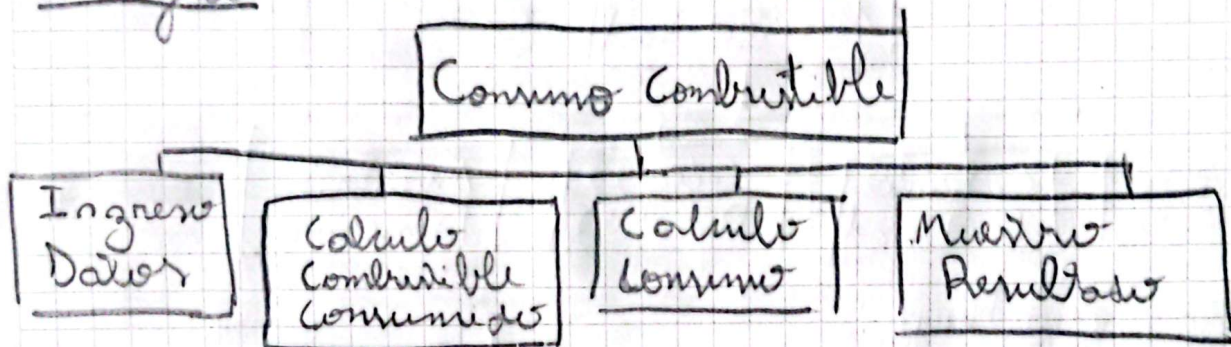 Consumo Combustible
Ingreso
Datos
Calculo
Combustible
Consumido
Calculo
Consumo
Muestro
Resultado